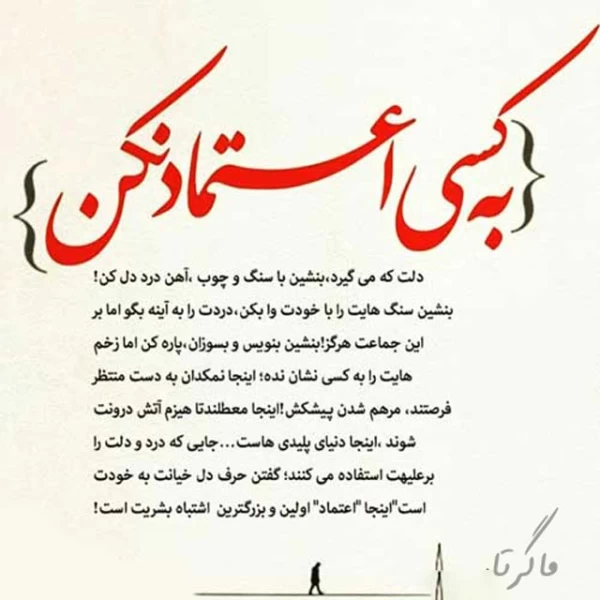 {به کسی اعتماد نکن}
دلت که می گیرد،بنشین با سنگ و چوب ،آهن درد دل کن!
بنشین سنگ هایت را با خودت وا بکن،دردت را به آینه بگو اما بر
این جماعت هرگز!بنشین بنویس و بسوزان،پاره کن اما زخم
هایت را به کسی نشان نده؛ اینجا نمکدان به دست منتظر
فرصتند، مرهم شدن پیشکش!اینجا معطلندتا هیزم آتش درونت
شوند ،اینجا دنیای پلیدی هاست...جایی که درد و دلت را
برعلیهت استفاده می کنند؛ گفتن حرف دل خیانت به خودت
است"اینجا "اعتماد" اولین و بزرگترین اشتباه بشریت است!
ماگرتا